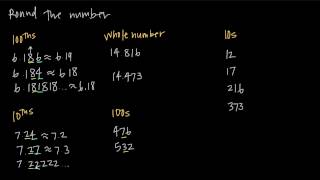 Round the number
100ths
6.186 ≈ 6.19
6.184 ≈ 6.18
6.181818... ≈ 6.18
whole number
14.816
14.473
10s
12
17
216
373
10ths
7.24 ≈ 7.2
7.27 ≈ 7.3
7.22222...
100s
476
532